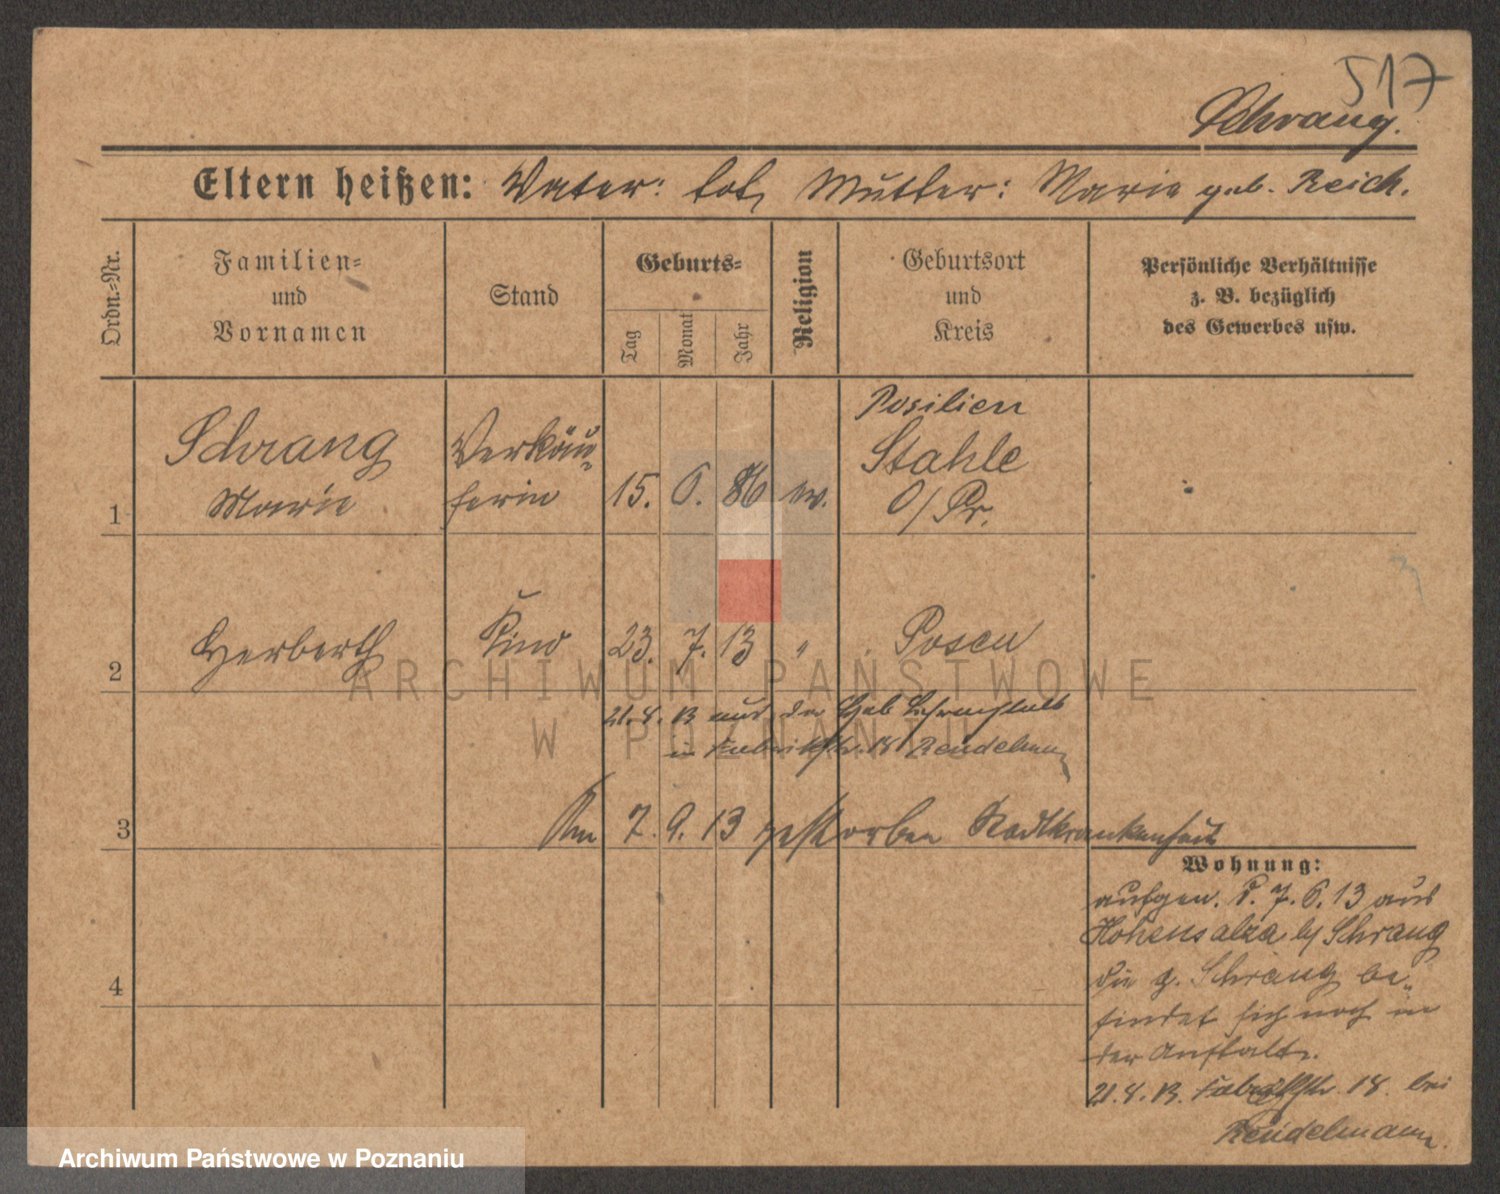 517
Schrang.
Eltern heißen: Vater: tot, Mutter: Marie geb. Reich.
Ordn.=Nr.
Familien=
und
Vornamen
Stand
Geburts=
Tag
Monat
Jahr
Religion
Geburtsort
und
Kreis
Persönliche Verhältnisse
z. B. bezüglich
des Gewerbes usw.
1
Schrang
Marie
Verkäu-
ferin
15. 6. 86 ev.
Posilien
Stahle
O/Pr.
2
Herberth
Kind
23. 7. 13 "
Posen
21. 8. 13 aus der Heb Lehranstalt
in Fabrikstr. 18 Rendelmann
3
Am 7. 9. 13 gestorben Stadtkrankenhaus
4
Wohnung:
aufgen. 7. 6. 13 aus
Hohensalza Schrang
die g. Schrang be-
findet sich noch in
der Anstalt.
21. 8. 13. Fabrikstr. 18. bei
Rendelmann.
ARCHIWUM PAŃSTWOWE
W POZNANIU
Archiwum Państwowe w Poznaniu